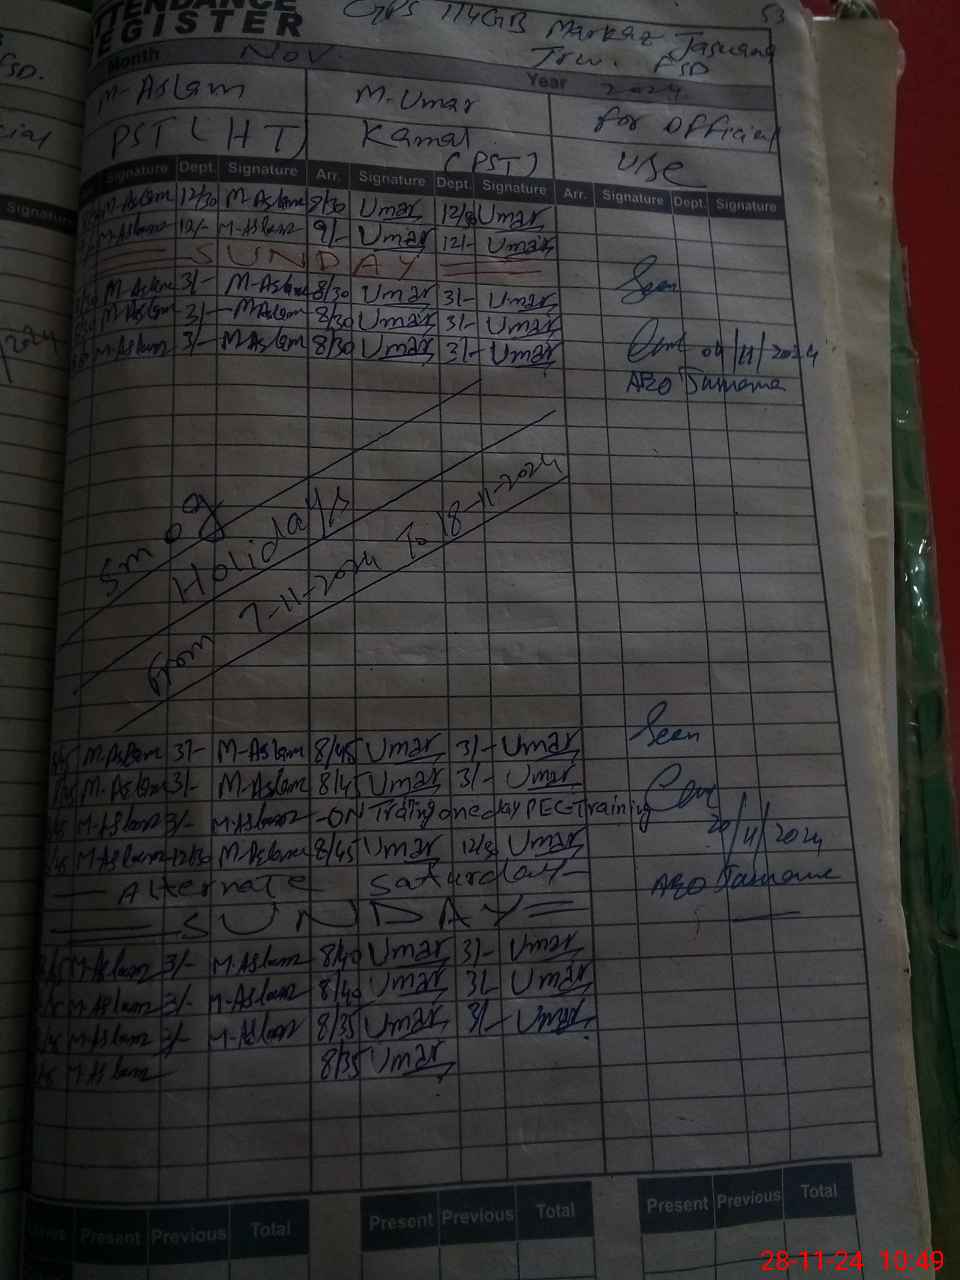 ATTENDANCE
REGISTER
GPS 114GB Markaz Jaswana 53
Trw. FSD
Month Nov. Year 2024
M-Aslam M-Umar for official
PST (HT) Kamal (PST) Use
Signature Dept. Signature Arr. Signature Dept. Signature Arr. Signature Dept. Signature
M-Aslam 12/30 M-Aslam 9/30 Umar Umar
M-Aslam 12/- M-Aslam 9/- Umar 12/- Umar
SUNDAY
M-Aslam 3/- M-Aslam 8/30 Umar 3/- Umar Seen
M-Aslam 3/- M-Aslam 8/30 Umar 3/- Umar
M-Aslam 3/- M-Aslam 8/30 Umar 3/- Umar 04/11/2024
AEO
Smog
Holidays
From 7-11-2024 To 18-11-2024
M-Aslam 3/- M-Aslam 8/45 Umar 3/- Umar Seen
M-Aslam 3/- M-Aslam 8/45 Umar 3/- Umar
M-Aslam 3/- M-Aslam -ON Traing one day PEC-Training
20/11/2024
M-Aslam 12/30 M-Aslam 8/45 Umar Umar
Alternate Saturday AEO
SUNDAY
M-Aslam 3/- M-Aslam 8/40 Umar 3/- Umar
M-Aslam 3/- M-Aslam 8/40 Umar 3/- Umar
M-Aslam 3/- M-Aslam 8/35 Umar 3/- Umar
M-Aslam 8/35 Umar
Present Previous Total Present Previous Total Present Previous Total
28-11-24 10:49